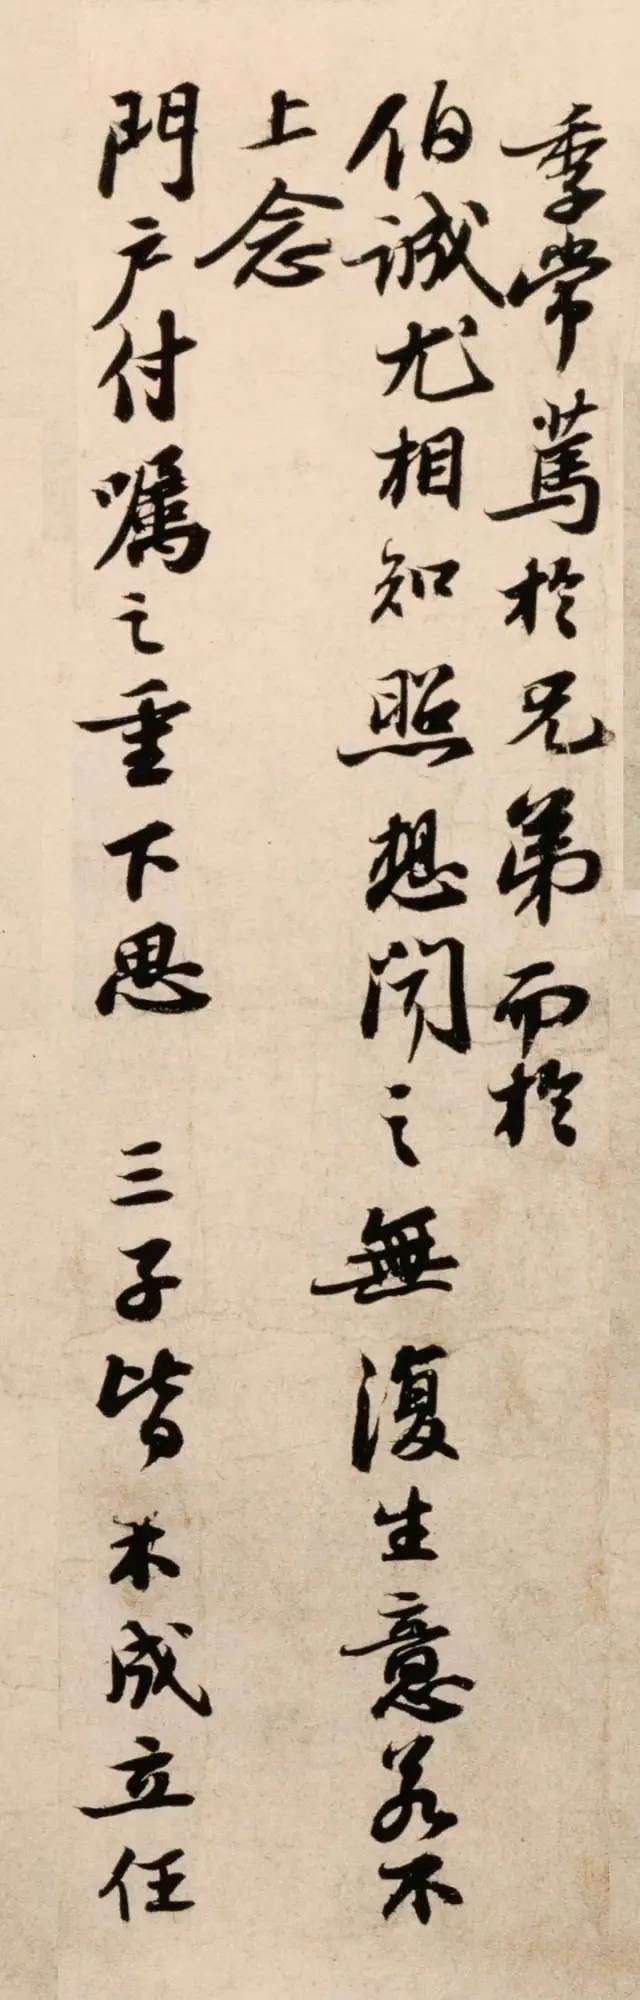 季常篤於兄弟而於
伯誠尤相知照想聞之無復生意若不
上念
門户付囑之重下思 三子皆未成立任